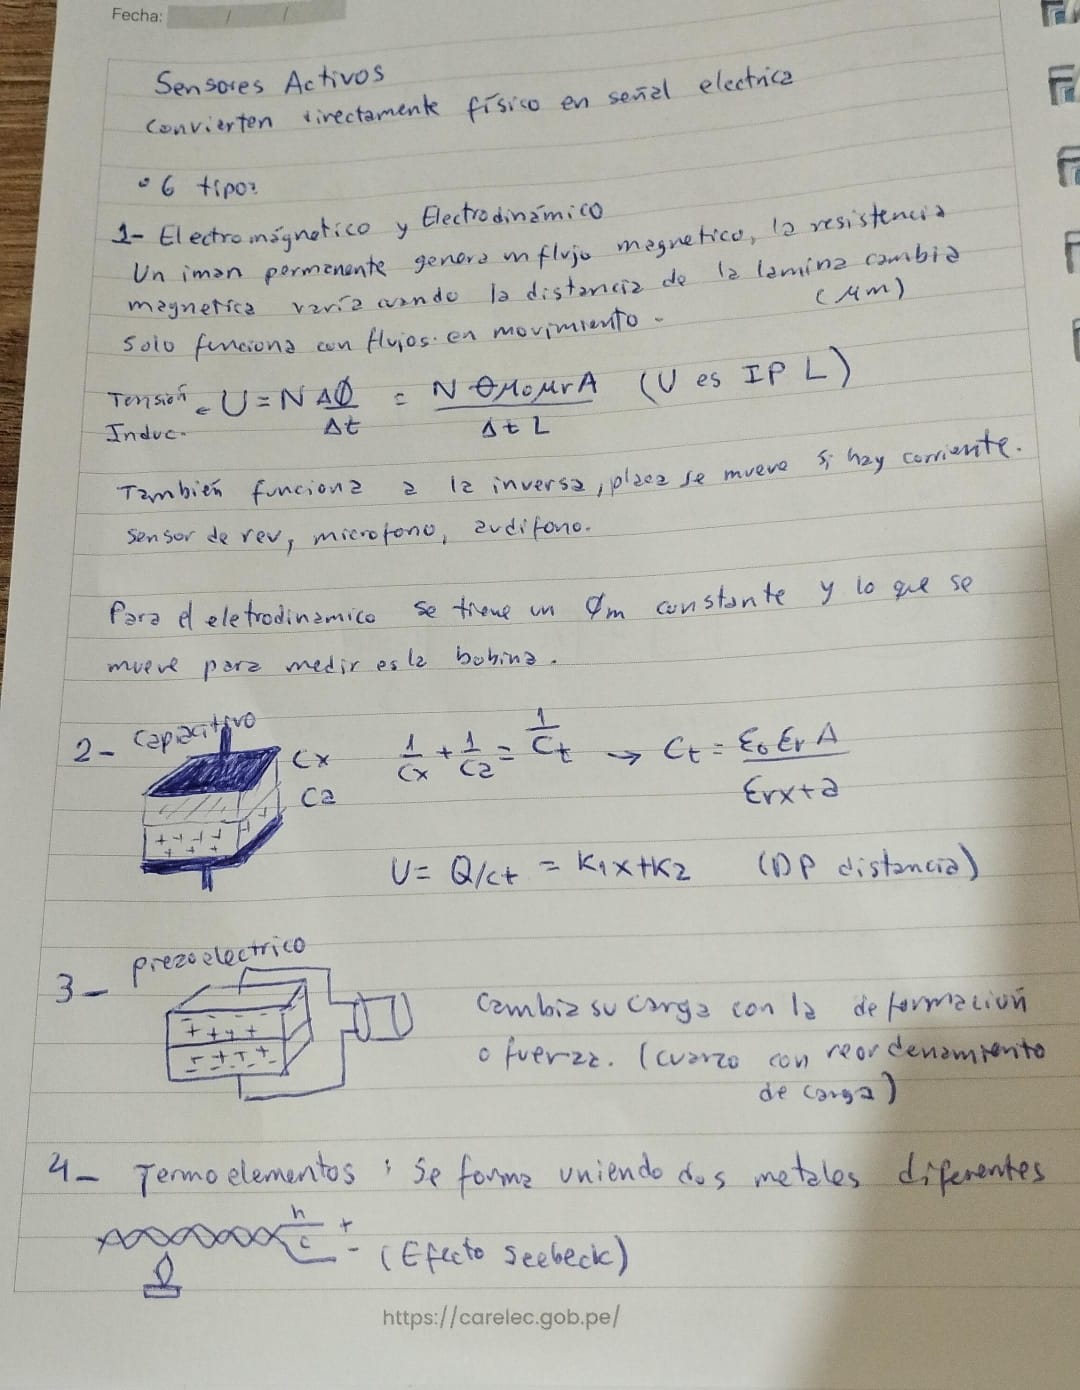 Fecha: / /
Sensores Activos
Convierten directamente físico en señal electrica
• 6 tipos
1- Electromágnetico y Electrodinámico
Un iman permanente genera un flujo magnetico, la resistencia
magnetica varía cuando la distancia de la lamina cambia
(μm)
Solo funciona con flujos en movimiento.
Tensión Induc. = U = N ΔØ/Δt = N θ μo μr A / Δt L (U es IP L)
También funciona a la inversa, placa se mueve si hay corriente.
Sensor de rev, microfono, audifono.
Para el eletrodinamico se tiene un Øm constante y lo que se
mueve para medir es la bobina.
2- Capacitivo
Cx
Ca
1/Cx + 1/Ca = 1/Ct → Ct = εo εr A / εrx+a
U = Q/ct = K1x+K2 (DP distancia)
3- piezoelectrico
Cambia su carga con la deformación
o fuerza. (cuarzo con reordenamiento
de carga)
4- Termoelementos : Se forma uniendo dos metales diferentes
h + c - (Efecto Seebeck)
https://carelec.gob.pe/